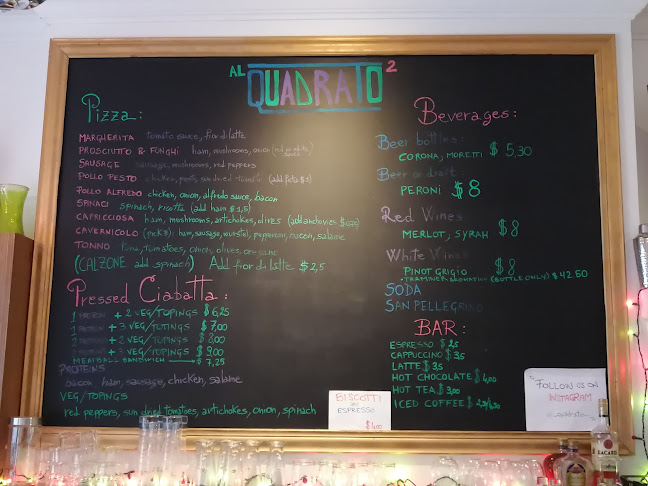 AL QUADRATO 2
Pizza:
MARGHERITA tomato sauce, fior di latte
PROSCIUTTO & FUNGHI ham, mushrooms, onion
SAUSAGE sausage, mushrooms, red peppers
POLLO PESTO chicken, pesto, sun dried tomato (add feta $1)
POLLO ALFREDO chicken, onion, alfredo sauce, bacon
SPINACI spinach, ricotta (add ham $1,5)
CAPRICCIOSA ham, mushrooms, artichokes, olives (add anchovies
CAVERNICOLO (pick 3): ham, sausage, wurstel, pepperoni, bacon, salame
TONNO tuna, tomatoes, onion, olives,
(CALZONE add spinach) Add fior di latte $2,5
Pressed Ciabatta:
1 PROTEIN + 2 VEG/TOPINGS $6,25
1 PROTEIN + 3 VEG/TOTINGS $7,00
2 + 2 VEG/TOPINGS $8,00
2 + 3 VEG/TOPINGS $9,00
MEATBALL SANDWICH $7,25
PROTEINS
bacon ham, sausage, chicken, salame
VEG/TOPINGS
red peppers, sun dried tomatoes, artichokes, onion, spinach
Beverages:
Beer bottles:
CORONA, MORETTI $5,30
Beer on draft
PERONI $8
Red Wines
MERLOT, SYRAH $8
White Wines
PINOT GRIGIO $8
(BOTTLE ONLY) $42.50
SODA
SAN PELLEGRINO
BAR:
ESPRESSO $25
CAPPUCCINO $35
LATTE $35
HOT CHOCOLATE $4,00
HOT TEA $3,00
ICED COFFEE $
BISCOTTI
ESPRESSO
$4.00
FOLLOW US ON
INSTAGRAM
BACARDI